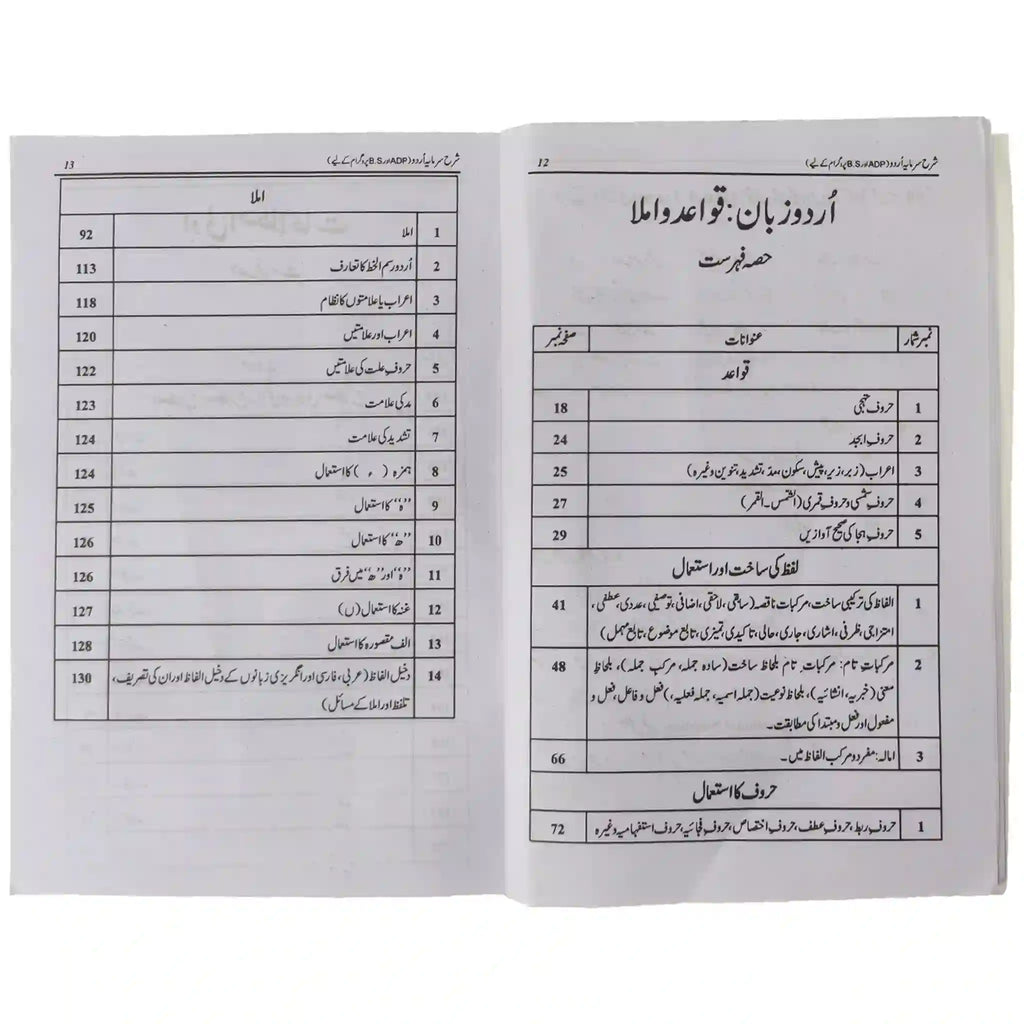 12 شرح سرمایہ اُردو (ADP اور B.S پروگرام کے لیے)
اُردو زبان: قواعد و املا
حصہ فہرست
نمبر شمار عنوانات صفحہ نمبر
قواعد
1 حروف تہجی 18
2 حروف ابجد 24
3 اعراب (زبر، زیر، پیش، سکون، مد، تشدید، تنوین وغیرہ) 25
4 حروفِ شمسی و حروفِ قمری (الشمس۔ القمر) 27
5 حروفِ ہجا کی صحیح آوازیں 29
لفظ کی ساخت اور استعمال
1 الفاظ کی ترکیبی ساخت، مرکبات ناقصہ (سابقی، لاحقی، اضافی، توصیفی، عددی، عطفی، 41
امتزاجی، ظرفی، اشاری، جاری، حالی، تاکیدی، تمیزی، تابع موضوع، تابع مہمل)
2 مرکباتِ تام: مرکبات تام بلحاظ ساخت (سادہ جملہ، مرکب جملہ)، بلحاظِ 48
معنی (خبریہ، انشائیہ)، بلحاظ نوعیت (جملہ اسمیہ، جملہ فعلیہ،) فعل و فاعل، فعل و
مفعول اور فعل و مبتدا کی مطابقت۔
3 امالہ: مفرد و مرکب الفاظ میں۔ 66
حروف کا استعمال
1 حروفِ ربط، حروفِ عطف، حروفِ اختصاص، حروفِ فجائیہ، حروف استفہامیہ وغیرہ 72
13 شرح سرمایہ اُردو (ADP اور B.S پروگرام کے لیے)
املا
1 املا 92
2 اُردو رسم الخط کا تعارف 113
3 اعراب یا علامتوں کا نظام 118
4 اعراب اور علامتیں 120
5 حروفِ علت کی علامتیں 122
6 مد کی علامت 123
7 تشدید کی علامت 124
8 ہمزہ (ء) کا استعمال 124
9 ”ہ“ کا استعمال 125
10 ”ھ“ کا استعمال 126
11 ”ہ“ اور ”ھ“ میں فرق 126
12 غنہ کا استعمال (ں) 127
13 الف مقصورہ کا استعمال 128
14 دخیل الفاظ (عربی، فارسی اور انگریزی زبانوں کے دخیل الفاظ اور ان کی تصریف، 130
تلفظ اور املا کے مسائل)